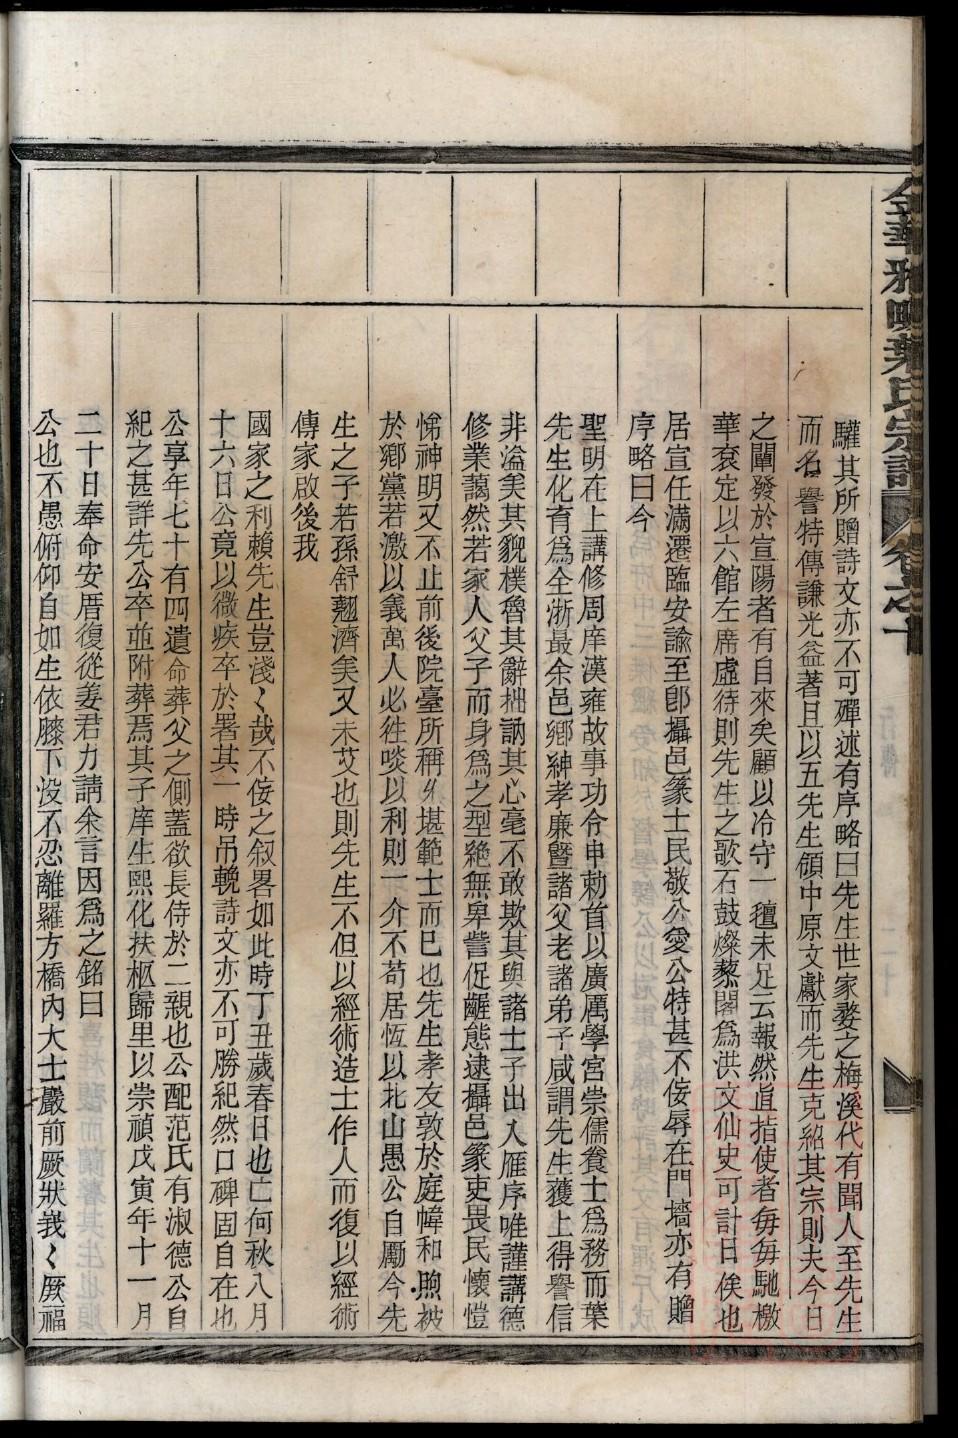 金華雅畈葉氏宗譜 卷之十
驩其所贈詩文亦不可殫述有序略曰先生世家婺之梅溪代有聞人至先生
而名譽特傳謙光益著且以五先生領中原文獻而先生克紹其宗則夫今日
之闡發於宣陽者有自來矣顧以冷守一氊未足云報然直指使者每每馳檄
華衮定以六館左席虛待則先生之歌石鼓燦藜閣爲洪文仙史可計日俟也
居宣任滿遷臨安諭至卽攝邑篆士民敬公愛公特甚不佞辱在門墻亦有贈
序略曰今
聖明在上講修周庠漢雍故事功令申勅首以廣厲學宮崇儒養士爲務而葉
先生化育爲全浙最余邑鄉紳孝廉曁諸父老諸弟子咸謂先生獲上得譽信
非溢美其貌樸魯其辭拙訥其心毫不敢欺其與諸士子出入雁序唯謹講德
修業藹然若家人父子而身爲之型絕無皐訾促齷態逮攝邑篆吏畏民懷愷
悌神明又不止前後院臺所稱 堪範士而已也先生孝友敦於庭幃和煦被
於鄉黨若激以義萬人必徃啖以利則一介不苟居恆以北山愚公自勵今先
生之子若孫舒翹濟美又未艾也則先生不但以經術造士作人而復以經術
傳家啟後我
國家之利賴先生豈淺〻哉不佞之叙畧如此時丁丑歲春日也亡何秋八月
十六日公竟以微疾卒於署其一時吊輓詩文亦不可勝紀然口碑固自在也
公享年七十有四遺命葬父之側蓋欲長侍於二親也公配范氏有淑德公自
紀之甚詳先公卒並附葬焉其子庠生熙化扶柩歸里以崇禎戊寅年十一月
二十日奉命安厝復從姜君力請余言因爲之銘曰
公也不愚俯仰自如生依膝下沒不忍離羅方橋內大士巖前厥狀峩〻厥福